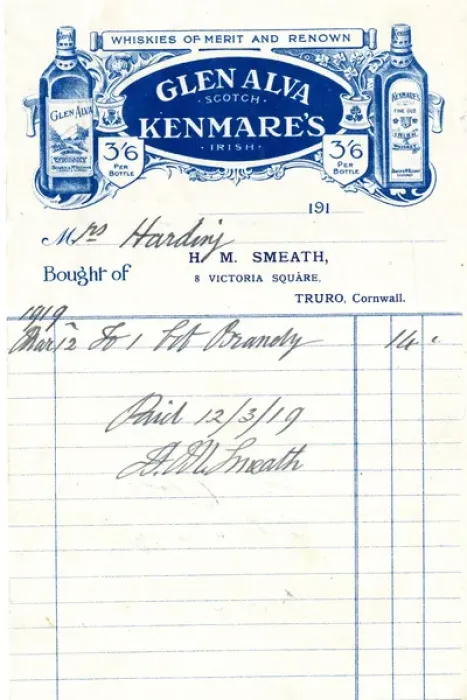 WHISKIES OF MERIT AND RENOWN
GLEN ALVA
·SCOTCH·
KENMARE'S
·IRISH·
GLEN ALVA
3/6
PER
BOTTLE
3/6
PER
BOTTLE
KENMARE'S
191
Mrs Harding
H. M. SMEATH,
Bought of
8 VICTORIA SQUARE,
TRURO, Cornwall.
1919
Mar 12 To 1 bot Brandy 14
Paid 12/3/19
H. M. Smeath